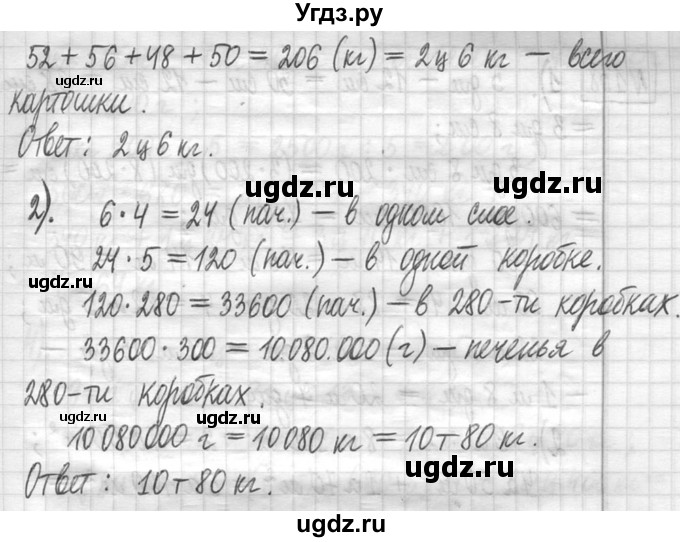 Угдз.ру
52 + 56 + 48 + 50 = 206 (кг) = 2 ц 6 кг – всего
ugdz.ru ugdz.ru
картошки.
Ответ: 2 ц 6 кг.
ugdz.ru
2). 6 · 4 = 24 (пач.) – в одном слое.
24 · 5 = 120 (пач.) – в одной коробке.
ugdz.ru ugdz.ru
120 · 280 = 33600 (пач.) – в 280-ти коробках.
33600 · 300 = 10080.000 (г) – печенья в
ugdz.ru
280-ти коробках.
10 080 000 г = 10 080 кг = 10 т 80 кг.
ugdz.ru ugdz.ru
Ответ: 10 т 80 кг.
ugdz.ru